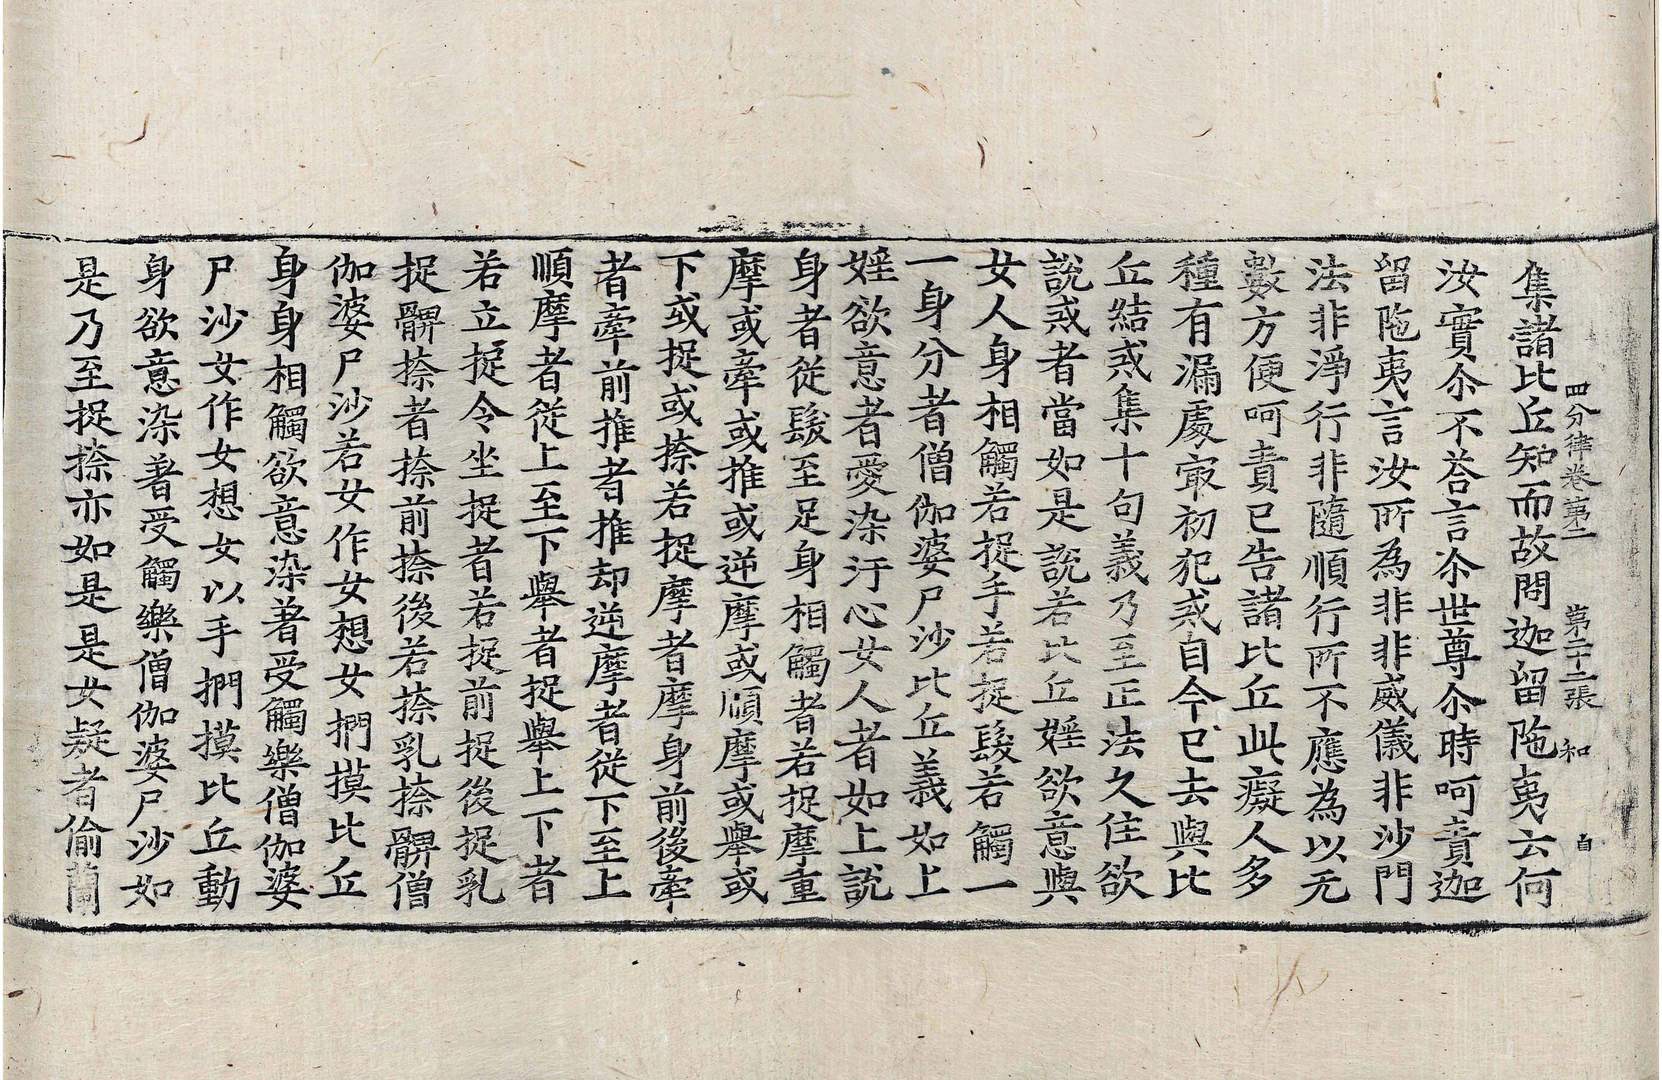 四分律卷第二 第二十二張 和
集諸比丘知而故問迦留陁夷云何
汝實尒不荅言尒世尊尒時呵責迦
留陁夷言汝所為非非威儀非沙門
法非淨行非隨順行所不應為以无
數方便呵責已告諸比丘此癡人多
種有漏處㝡初犯戒自今已去與比
丘結戒集十句義乃至正法久住欲
說戒者當如是說若比丘婬欲意與
女人身相觸若捉手若捉髮若觸一
一身分者僧伽婆尸沙比丘義如上
婬欲意者愛染汙心女人者如上說
身者從髮至足身相觸者若捉摩重
摩或牽或推或逆摩或順摩或舉或
下或捉或捺若捉摩者摩身前後牽
者牽前推者推却逆摩者從下至上
順摩者從上至下舉者捉舉上下者
若立捉令坐捉者若捉前捉後捉乳
捉髀捺者捺前捺後若捺乳捺髀僧
伽婆尸沙若女作女想女捫摸比丘
身身相觸欲意染著受觸樂僧伽婆
尸沙女作女想女以手捫摸比丘動
身欲意染著受觸樂僧伽婆尸沙如
是乃至捉捺亦如是是女疑者偷蘭